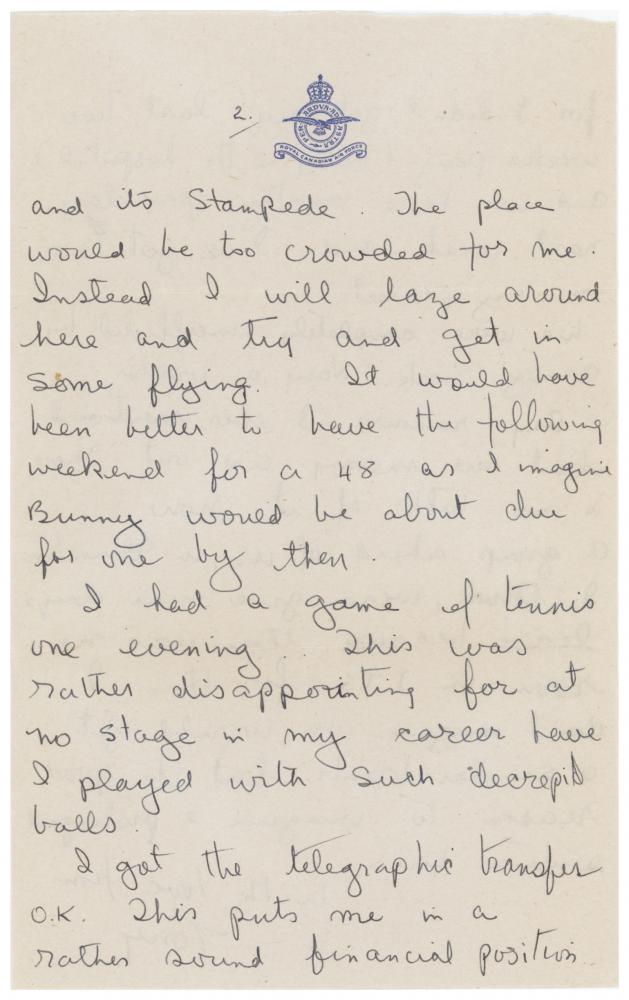 2.
PER ARDVA AD ASTRA
ROYAL CANADIAN AIR FORCE
and its Stampede. The place
would be too crowded for me.
Instead I will laze around
here and try and get in
some flying. It would have
been better to have the following
weekend for a 48 as I imagine
Bunny would be about due
for one by then.
I had a game of tennis
one evening. This was
rather disappointing for at
no stage in my career have
I played with such decrepit
balls.
I got the telegraphic transfer
O.K. This puts me in a
rather sound financial position